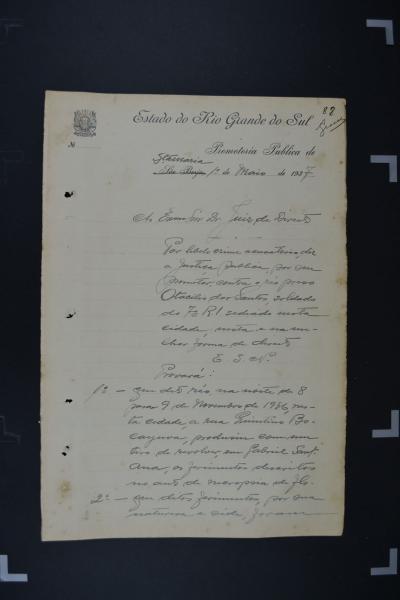 82
Estado do Rio Grande do Sul
Nº
Promotoria Publica de
Sta Maria
São Borja, 1º de Maio de 1937.
Ao Exmo Snr Dr. Juiz de Direito
Por libelo crime accusatorio, diz
a Justiça Publica, por seu
Promotor, contra o réo preso
Otacilio dos Santos, soldado
do 7º R I sediado nesta
cidade, nesta e na me-
lhor forma de direito
E. S. N.
Provará:
1º - que dito réo, na noite de 8
para 9 de Novembro de 1936, nes-
ta cidade, a rua Quintino Bo-
cayuva, produziu com um
tiro de revolver, em Gabriel Sant'
Ana, os ferimentos descritos
no auto de necropsia de fls.
2º - que ditos ferimentos, por sua
natureza e séde, foram